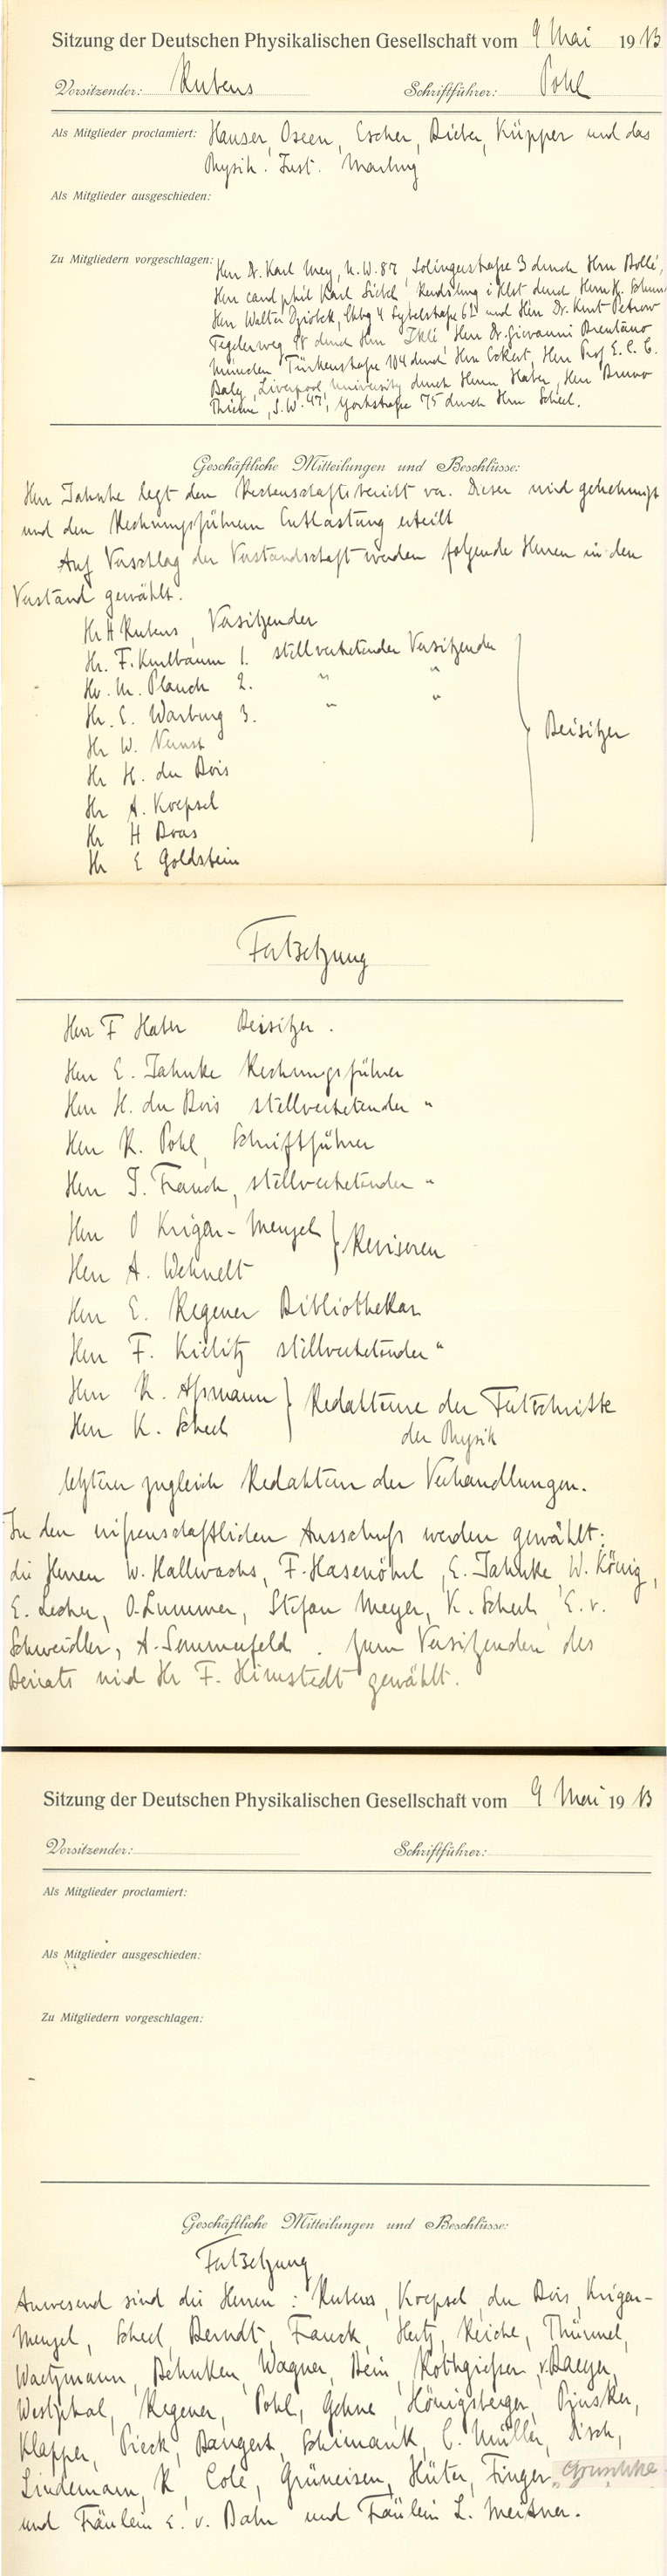 Sitzung der Deutschen Physikalischen Gesellschaft vom 9 Mai 1913
Vorsitzender: Rubens Schriftführer: Pohl
Als Mitglieder proclamiert: Hauser, Oseen, Escher, Bieber, Küpper und das
Physik. Inst. Marburg
Als Mitglieder ausgeschieden:
Zu Mitgliedern vorgeschlagen: Herr Dr. Karl Mey, N.W. 87, Solingerstraße 3 durch Hrn Bollé,
Herr cand phil Karl Siebel durch Herrn K.
Herr Walter Dziobek, Chbg 4 Sybelstraße 62 und Herr Dr. Kurt
Tegelerweg durch Herrn Iklé, Herr Dr. Giovanni Brentano
München Türkenstraße 104 durch Hrn Eckert, Herr Prof E. C. C.
Baly, Liverpool University durch Herrn Haber, Herr Bruno
Thieme, S.W. 47, Yorkstraße 75 durch Hrn Scheel.
Geschäftliche Mitteilungen und Beschlüsse:
Herr Jahnke legt den Rechenschaftsbericht vor. Dieser wird genehmigt
und den Rechnungsführern Entlastung erteilt
Auf Vorschlag der Vorstandschaft werden folgende Herren in den
Vorstand gewählt.
Hr H Rubens, Vorsitzender
Hr. F. Kurlbaum 1. stellvertretender Vorsitzender
Hr. M. Planck 2. " "
Hr. E. Warburg 3. " "
Hr W. Nernst
Hr H. du Bois
Hr A. Koepsel
Hr H Boas
Hr E Goldstein
Beisitzer
Fortsetzung
Herr F Haber Beisitzer.
Herr E. Jahnke Rechnungsführer
Herr H. du Bois stellvertretender "
Herr R. Pohl, Schriftführer
Herr J. Franck, stellvertretender "
Herr O Krigar-Menzel
Herr A. Wehnelt
Revisoren
Herr E. Regener Bibliothekar
Herr F. Kiebitz stellvertretender "
Herr R. Aßmann
Herr K. Scheel
Redakteure der Fortschritte
der Physik
letzterer zugleich Redakteur der Verhandlungen.
In den wissenschaftlichen Ausschuß werden gewählt:
die Herren W. Hallwachs, F. Hasenöhrl, E. Jahnke, W. König,
E. Lecher, O. Lummer, Stefan Meyer, K. Scheel, E. v.
Schweidler, A. Sommerfeld. Zum Vorsitzenden des
Beirats wird Hr F. Himstedt gewählt.
Sitzung der Deutschen Physikalischen Gesellschaft vom 9 Mai 1913
Vorsitzender: Schriftführer:
Als Mitglieder proclamiert:
Als Mitglieder ausgeschieden:
Zu Mitgliedern vorgeschlagen:
Geschäftliche Mitteilungen und Beschlüsse:
Fortsetzung
Anwesend sind die Herren: Rubens, Koepsel, du Bois, Krigar-
Menzel, Scheel, Berndt, Franck, Hertz, Reiche, Thürmel,
Waetzmann, Behnken, Wagner, Bein, Rothgießer, v. Baeyer,
Westphal, Regener, Pohl, Gehne, Königsberger, Pinsker,
Klapper, Pieck, Bangert, Schimank, C. Müller, Disch,
Lindemann, R, Cole, Grüneisen, Hüter, Finger, Gruschke
und Fräulein E. v. Bahr und Fräulein L. Meitner.